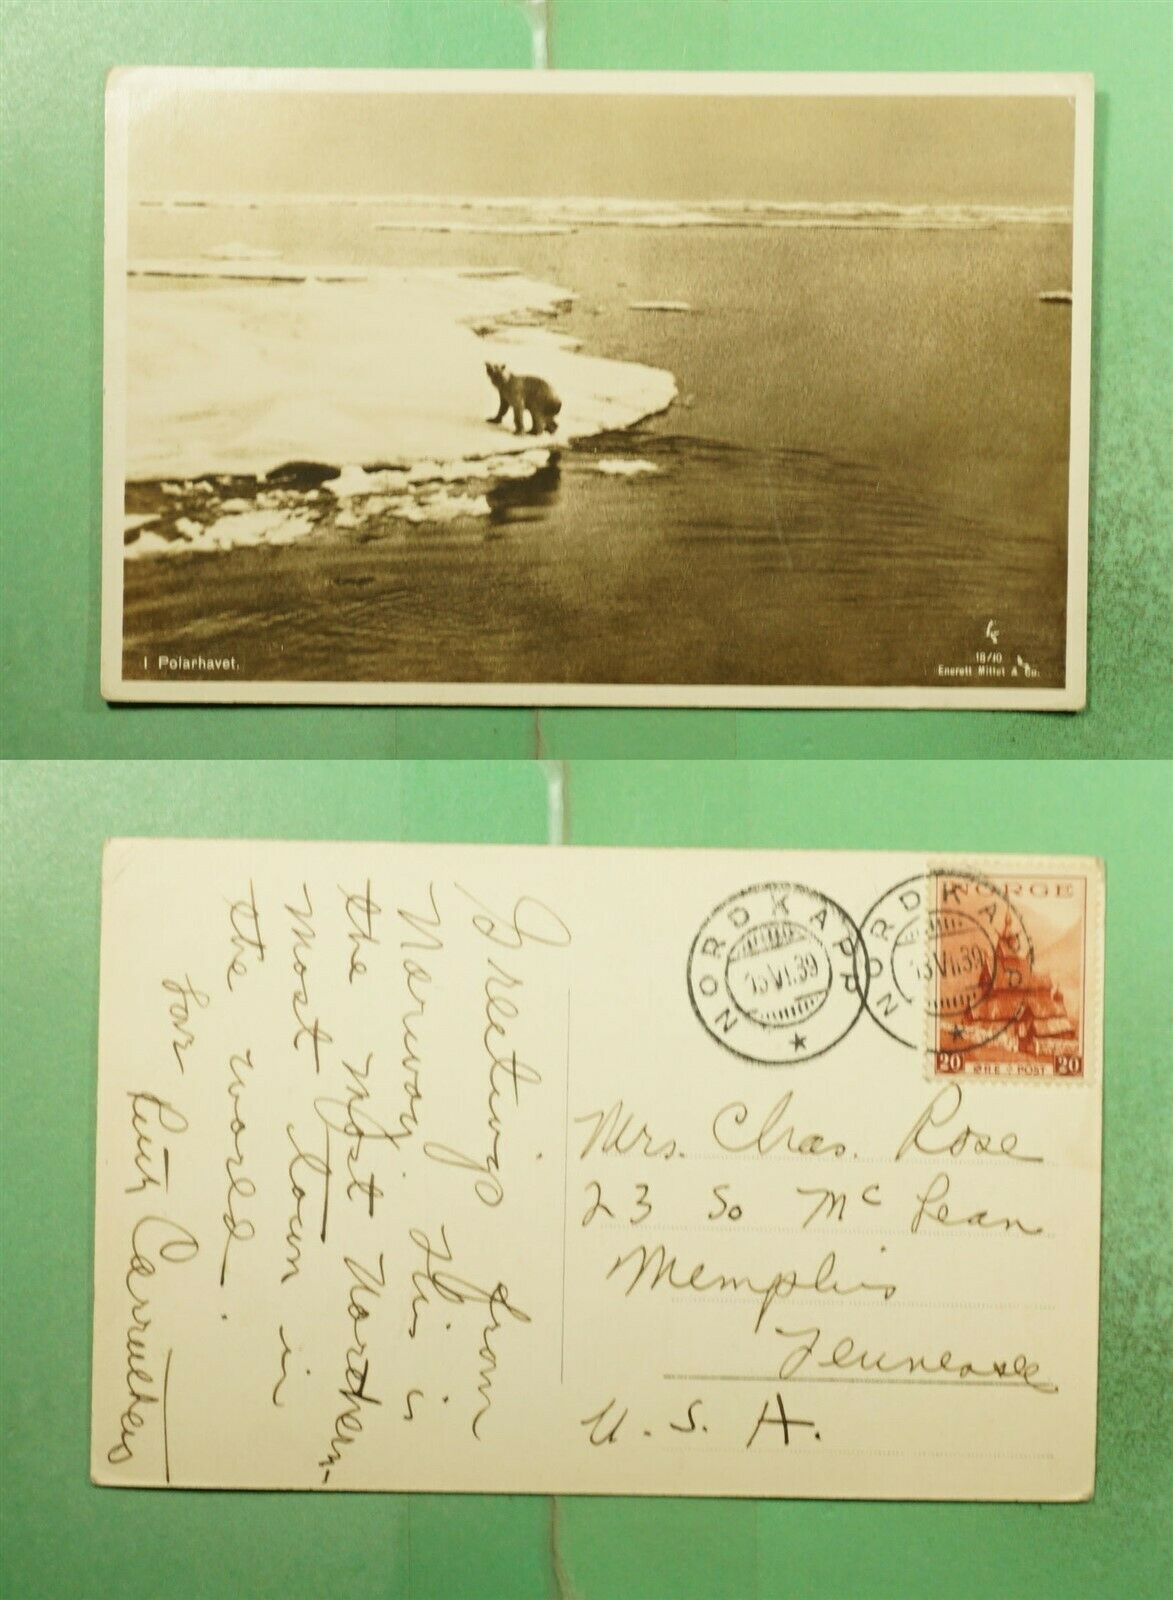 I Polarhavet.
18/10
Enerett Mittet & Co.
Greetings from
Norway. This is
the most Northern-
most town in
the world.
Ruth Carruthers
NORDKAPP
13 VI.39
NORDKAPP
13 VI.39
NORGE
20 ØRE POST 20
Mrs. Chas. Rose
23 So McLean
Memphis
Tennessee
U.S.A.